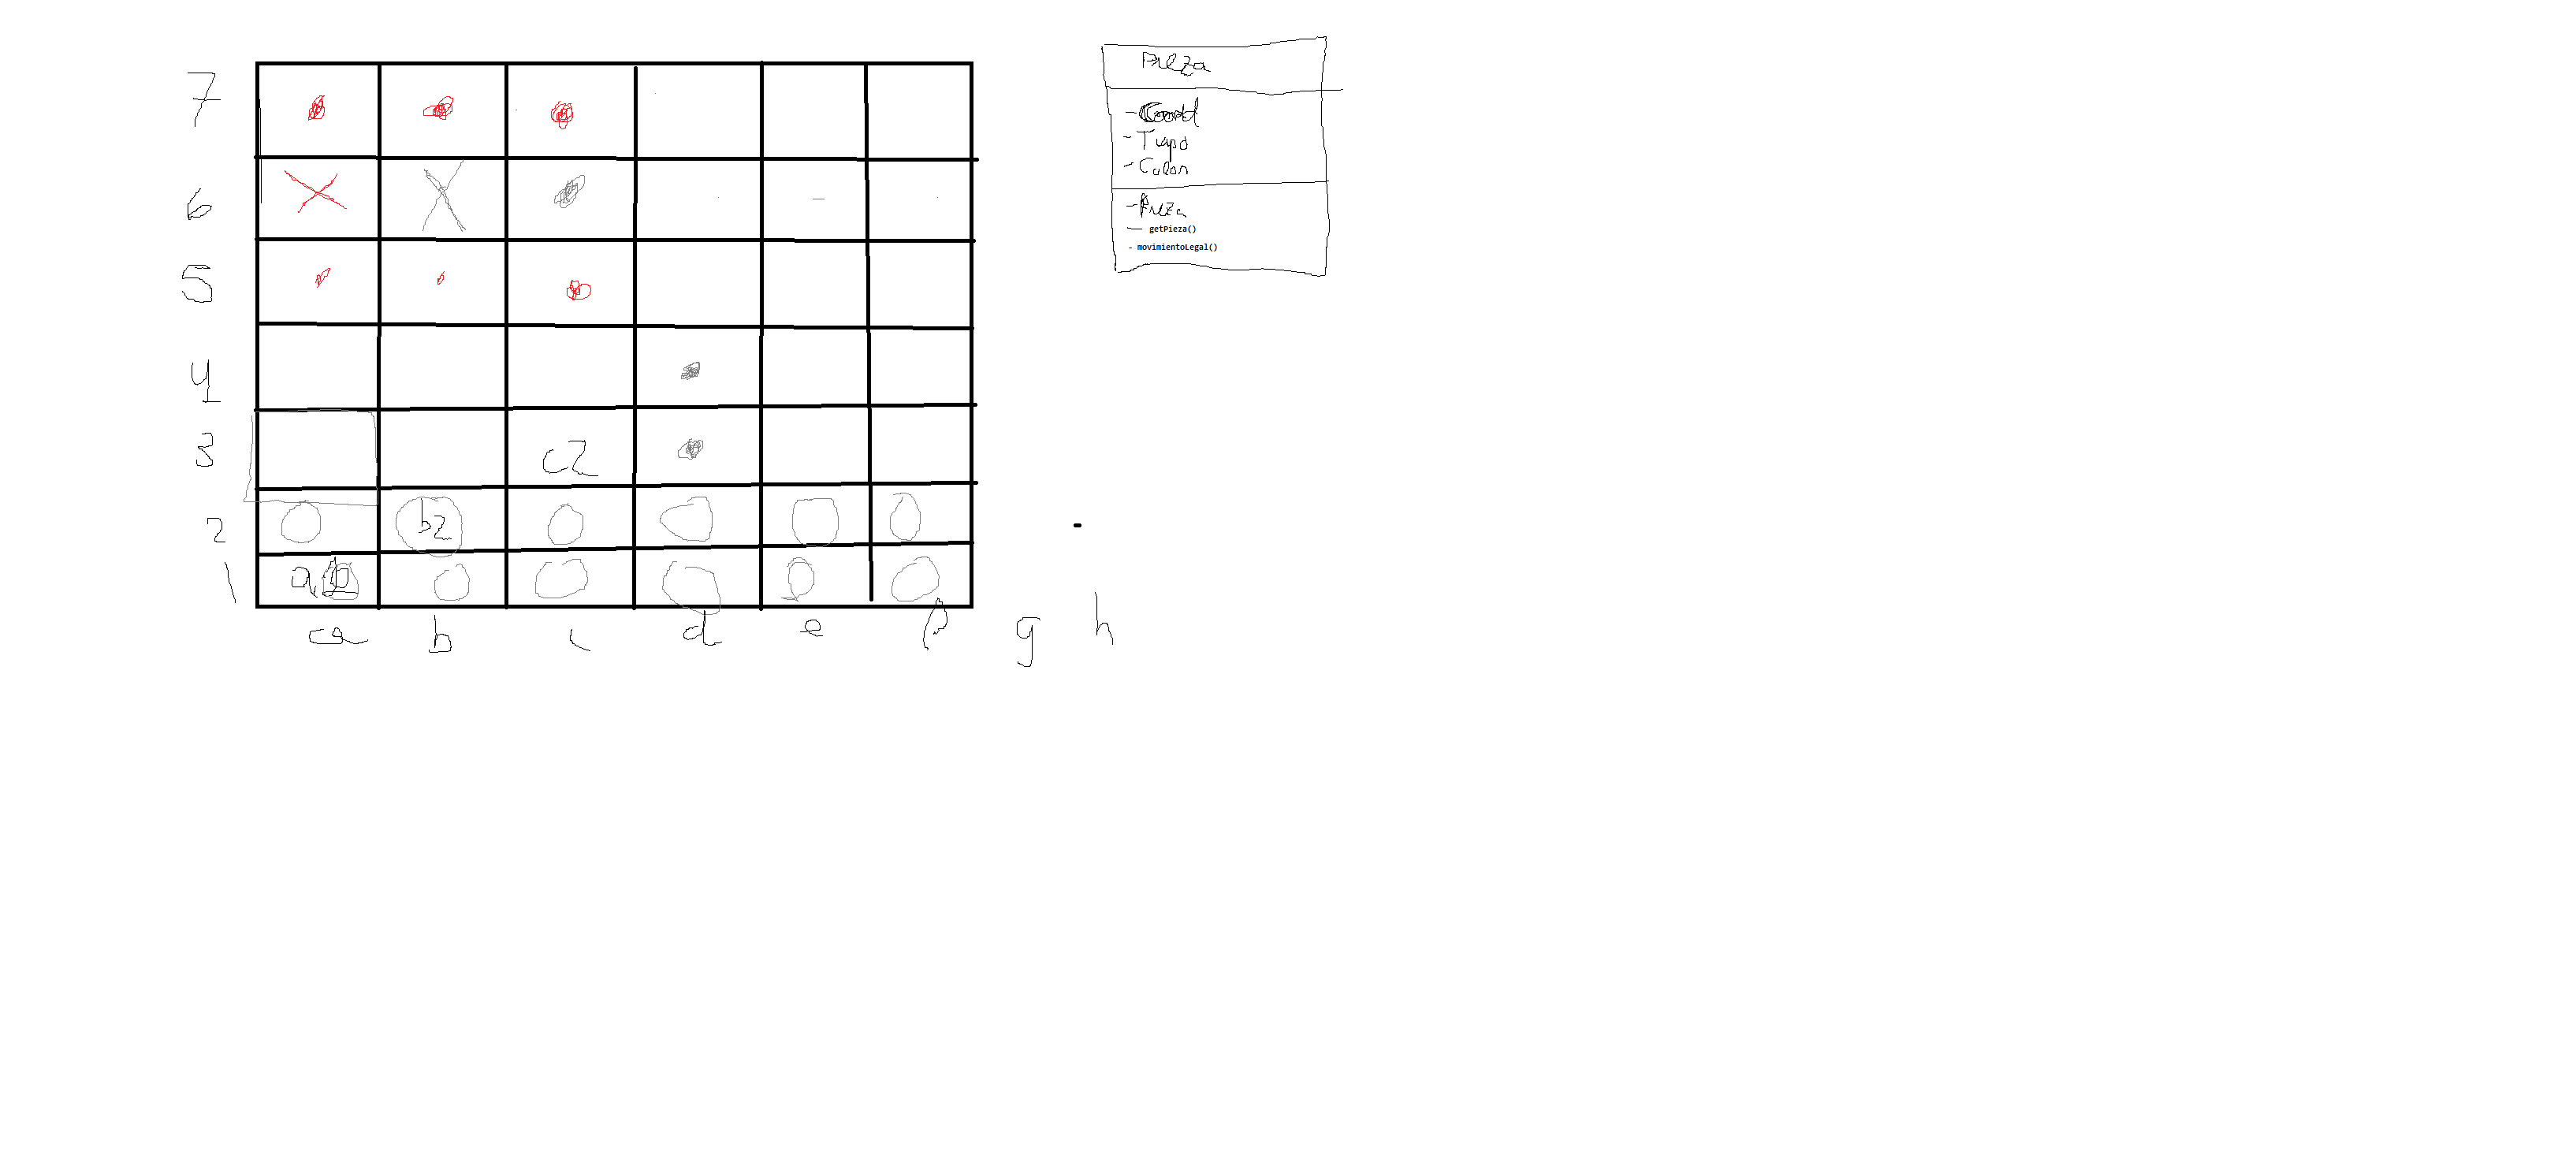 7
6
5
4
3
c2
2
b2
1
a
a b c d e f g h
Pieza
- Coord
- Tipo
- Color
- Pieza
- getPieza()
- movimientoLegal()